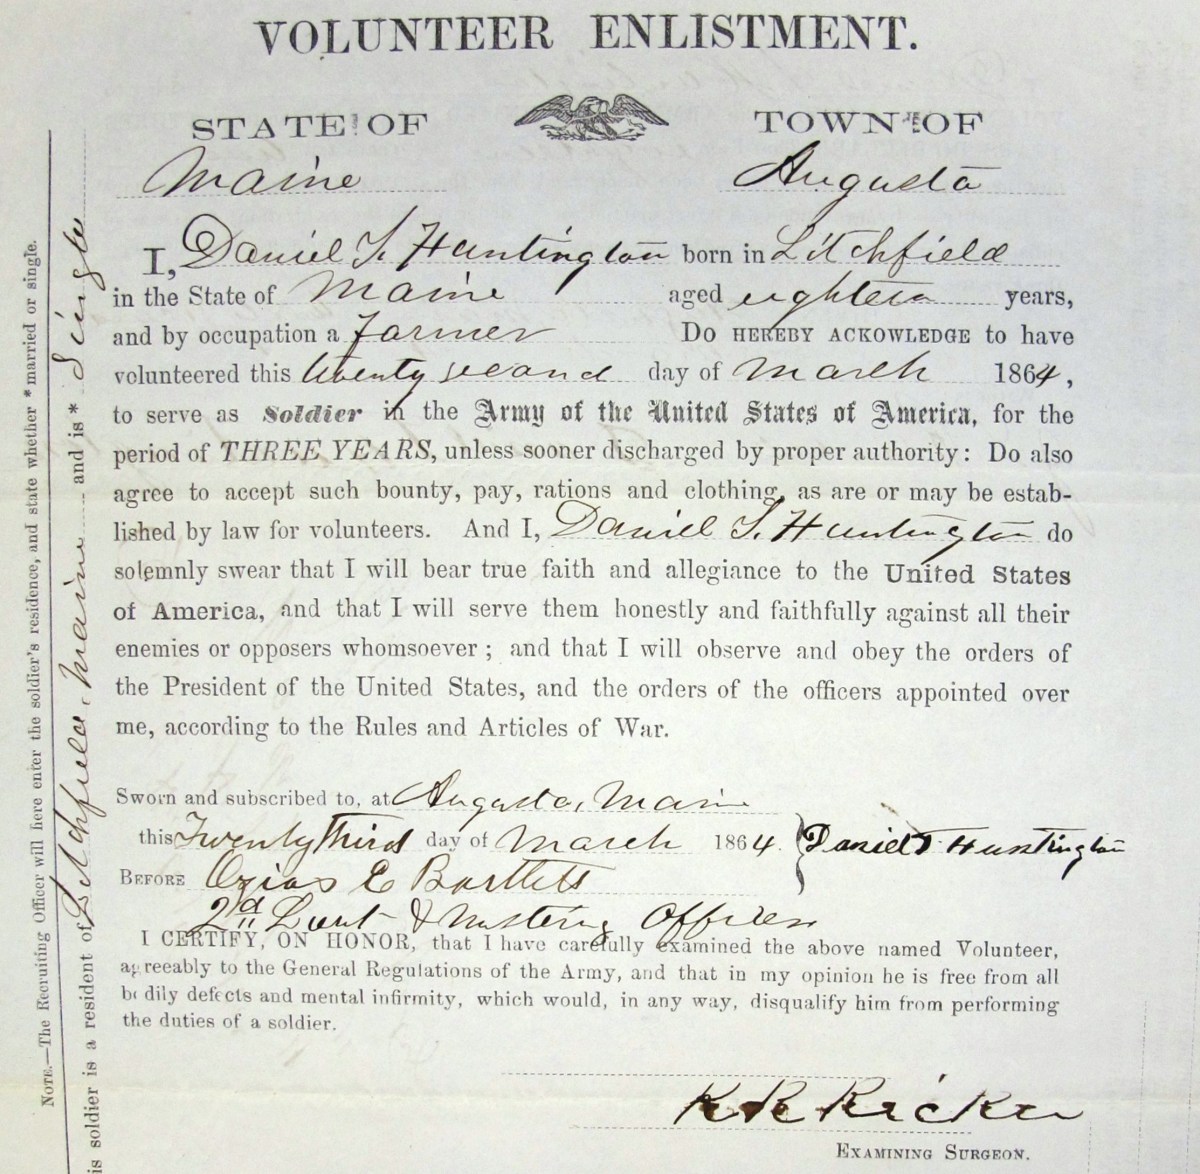 VOLUNTEER ENLISTMENT.
STATE OF TOWN OF
Maine Augusta
I, Daniel T. Huntington born in Litchfield
in the State of Maine aged eighteen years,
and by occupation a Farmer Do HEREBY ACKOWLEDGE to have
volunteered this twenty second day of March 1864,
to serve as Soldier in the Army of the United States of America, for the
period of THREE YEARS, unless sooner discharged by proper authority: Do also
agree to accept such bounty, pay, rations and clothing, as are or may be estab-
lished by law for volunteers. And I, Daniel T. Huntington do
solemnly swear that I will bear true faith and allegiance to the United States
of America, and that I will serve them honestly and faithfully against all their
enemies or opposers whomsoever; and that I will observe and obey the orders of
the President of the United States, and the orders of the officers appointed over
me, according to the Rules and Articles of War.
Sworn and subscribed to, at Augusta, Maine
this Twenty Third day of March 1864. Daniel T Huntington
BEFORE Ozias E Bartlett
2d Lieut & Mustering Officer
I CERTIFY, ON HONOR, that I have carefully examined the above named Volunteer,
agreeably to the General Regulations of the Army, and that in my opinion he is free from all
bodily defects and mental infirmity, which would, in any way, disqualify him from performing
the duties of a soldier.
Ricker
EXAMINING SURGEON.
NOTE.—The Recruiting Officer will here enter the soldier's residence, and state whether *married or single.
is soldier is a resident of Litchfield, Maine and is* Single